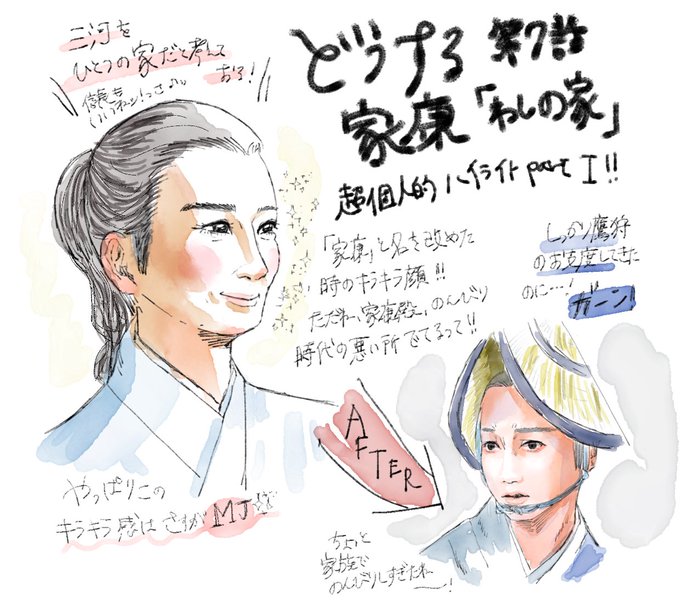 三河を
ひとつの家だと考えて
おる!
どうする 第7話
家康「わしの家」
超個人的ハイライト part I!!
「家康」と名を改めた
時のキラキラ顔!!
ただねー、家康殿…、のんびり
時代の悪い所でてるって!!
しっかり鷹狩
のお支度してきた
のに…!
ガーン!
AFTER
やっぱりこの
キラキラ感はさすがMJ
ちょっと
家族で
のんびりしすぎたねー!